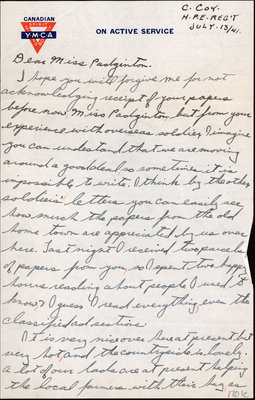 CANADIAN
YMCA
ON ACTIVE SERVICE
C. Coy.
H.P.E. REG'T
JULY. 13/41.
Dear Miss Padginton.
I hope you will forgive me for not
acknowledging receipt of your papers
before now Miss Padginton, but from your
experience with overseas soldiers I imagine
you can understand that we are moving
around a good deal, so sometimes it is
impossible to write. I think by the other
soldiers' letters you can easily see
how much the papers from the old
home town are appreciated by us over
here. Last night I received two parcels
of papers from you, so I spent two happy
hours reading about people I used to
know. I guess I read everything, even the
classified ad section.
It is very nice over here at present but
very hot and the countryside is lovely.
A lot of our lads are at present helping
the local farmers with their hay as